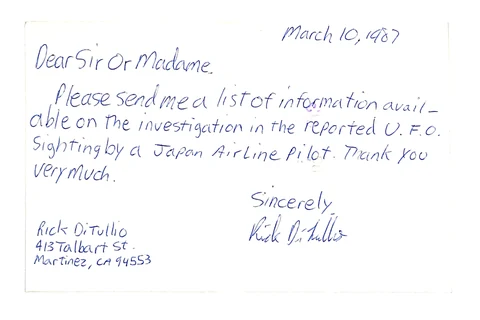 March 10, 1987
Dear Sir Or Madame.
Please send me a list of information avail-
able on the investigation in the reported U.F.O.
Sighting by a Japan Airline Pilot. Thank you
very much.
Sincerely,
Rick DiTullio
Rick DiTullio
413 Talbart St.
Martinez, CA 94553